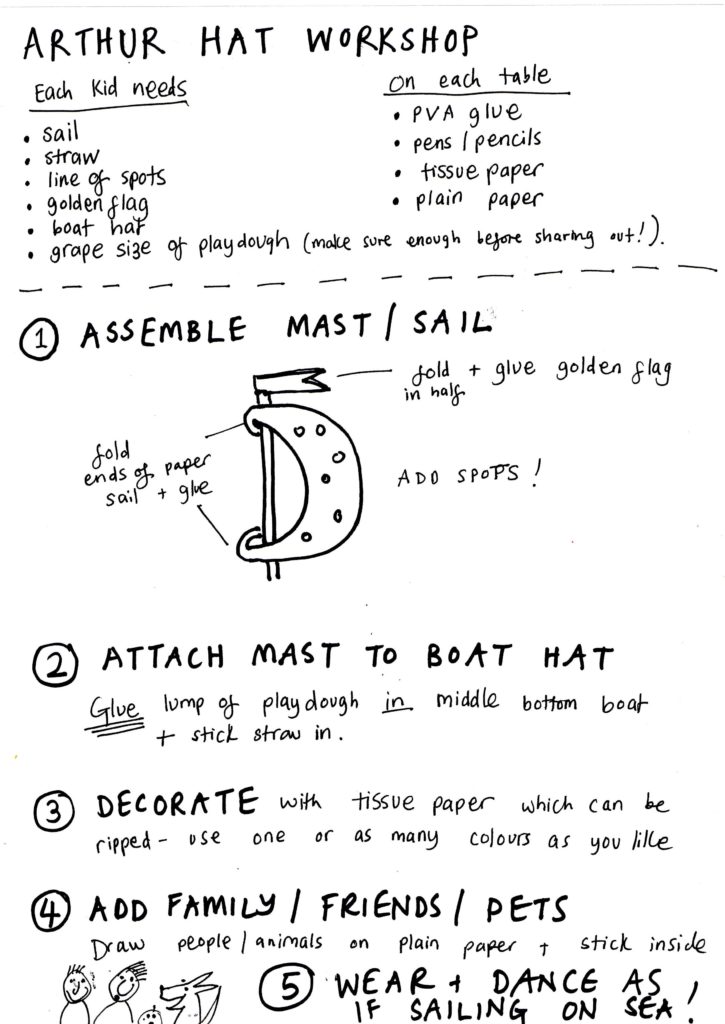 ARTHUR HAT WORKSHOP
Each Kid needs
• sail
• straw
• line of spots
• golden flag
• boat hat
• grape size of playdough (make sure enough before sharing out!).
On each table
• PVA glue
• pens / pencils
• tissue paper
• plain paper
① ASSEMBLE MAST / SAIL
fold + glue golden flag
in half
fold
ends of paper
sail + glue
ADD SPOTS!
② ATTACH MAST TO BOAT HAT
Glue lump of playdough in middle bottom boat
+ stick straw in.
③ DECORATE with tissue paper which can be
ripped - use one or as many colours as you like
④ ADD FAMILY / FRIENDS / PETS
Draw people / animals on plain paper + stick inside
⑤ WEAR + DANCE AS
IF SAILING ON SEA!